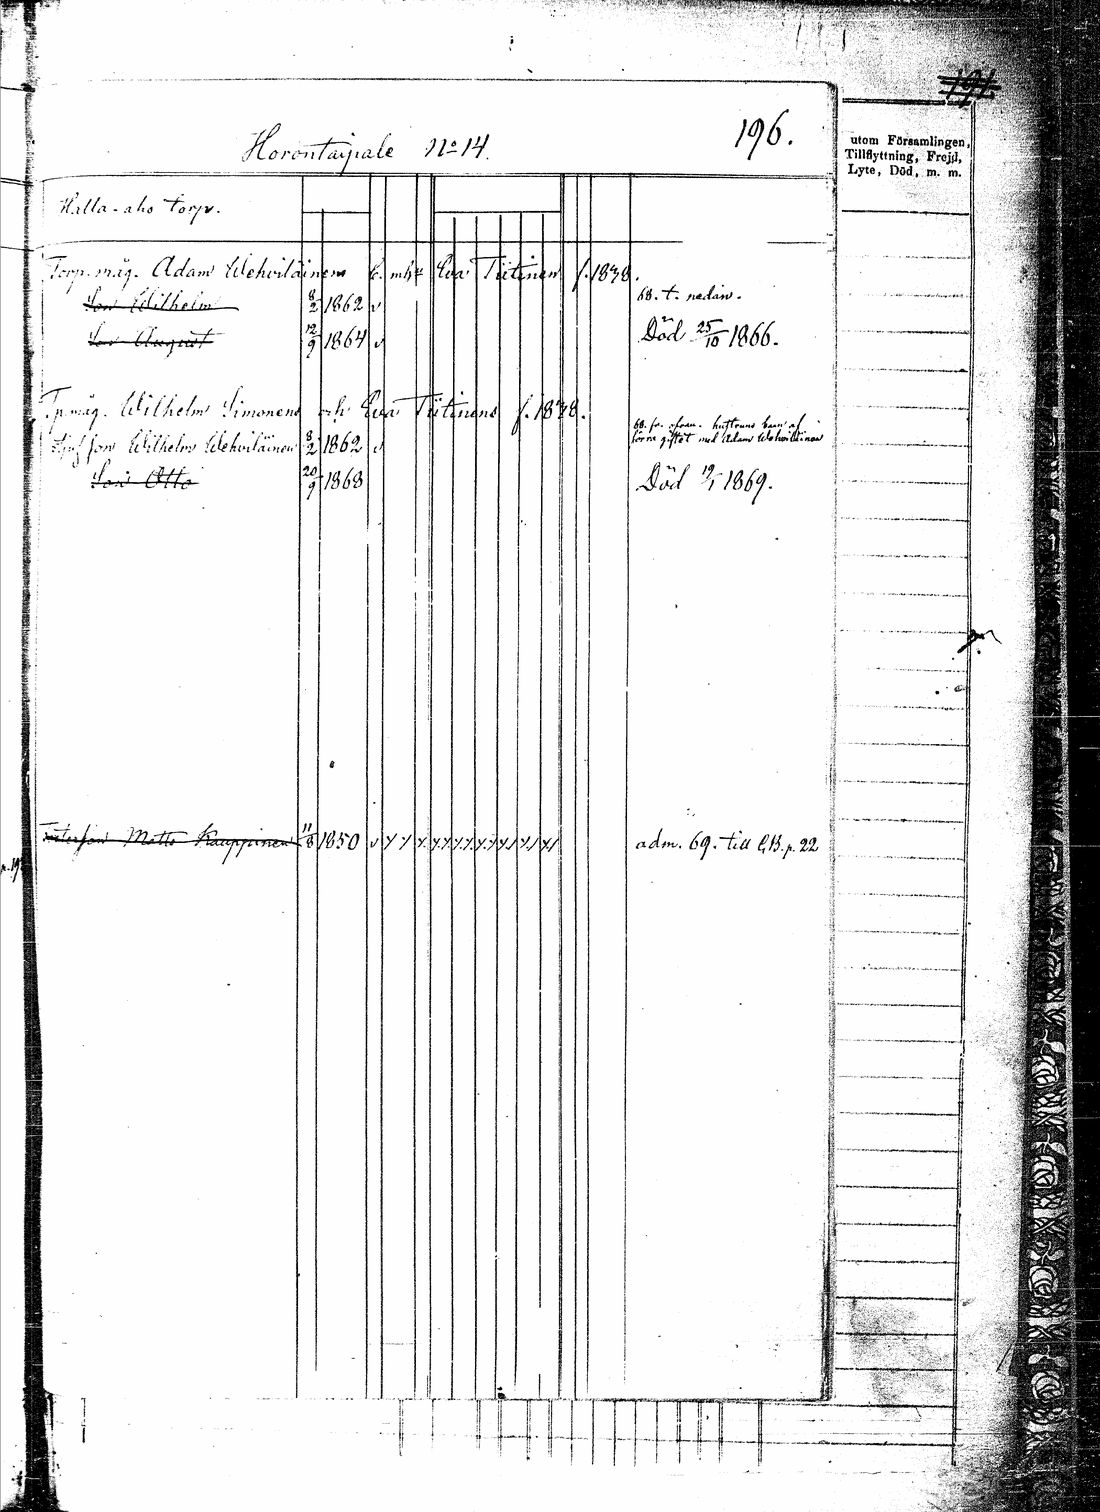 196.
utom Församlingen,
Tillflyttning, Frejd,
Lyte, Död, m. m.
Horontaipale No 14.
Halla-aho torp.
Torp. måg. Adam Wehviläinens Eva Tiitinen f. 1838.
Son Wilhelm 8/2 1862 v 68. t. nedan.
Son August 12/9 1864 v Död 25/10 1866.
Tp måg. Wilhelm Simonens och Eva Tiitinens f. 1838.
son Wilhelm Wehviläinen 8/2 1862 v 68. fr. ofvan. hustruns barn af
förra giftet med Adam Wehviläinen
Son Otto 20/9 1868 Död 19/1 1869.
Fosterson Matts Kauppinen 11/8 1850 v adm. 69. till C.B. p. 22